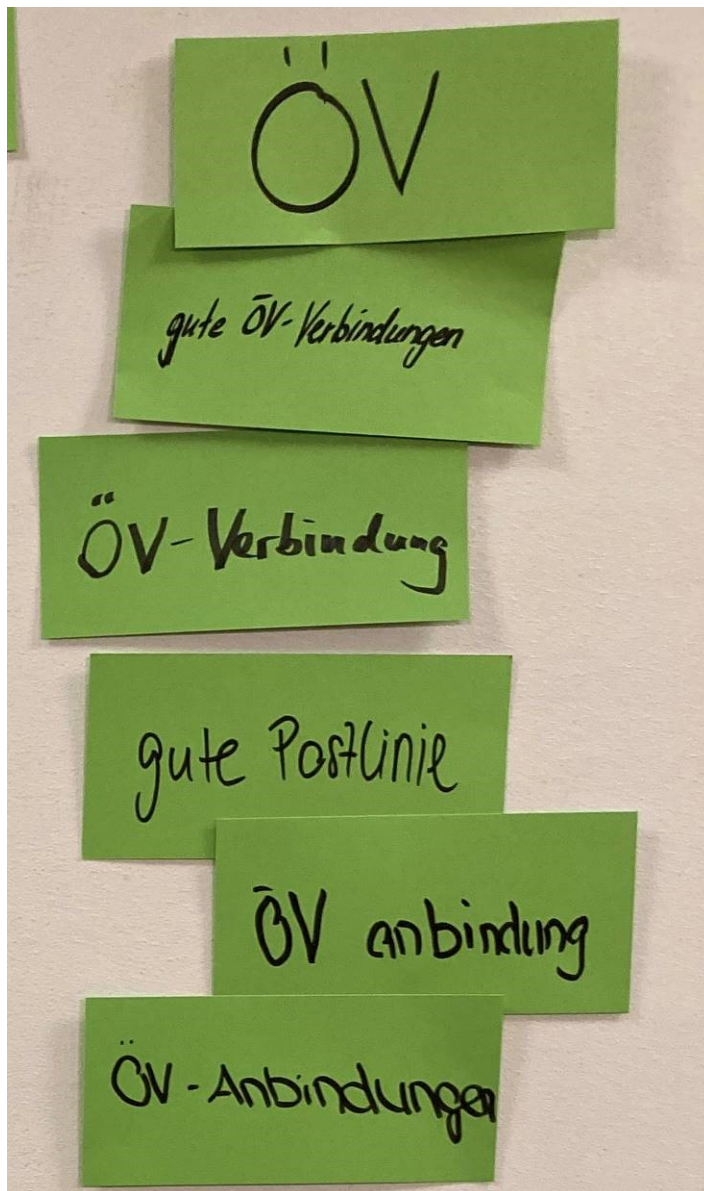 ÖV
gute ÖV-Verbindungen
ÖV-Verbindung
gute Postlinie
ÖV anbindung
ÖV-Anbindungen